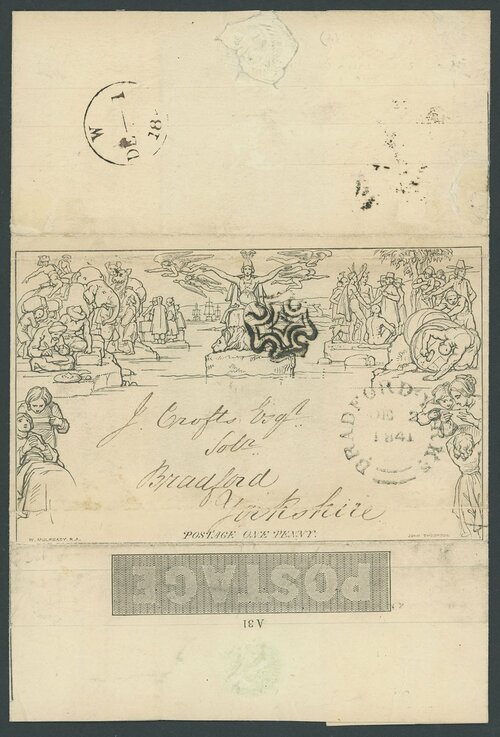 W 1
DE
18
BRADFORD YORKS
DE 2
1841
J. Crofts Esqr.
Solr.
Bradford
Yorkshire
POSTAGE ONE PENNY.
W. MULREADY R.A.
JOHN THOMPSON
POSTAGE
A 31